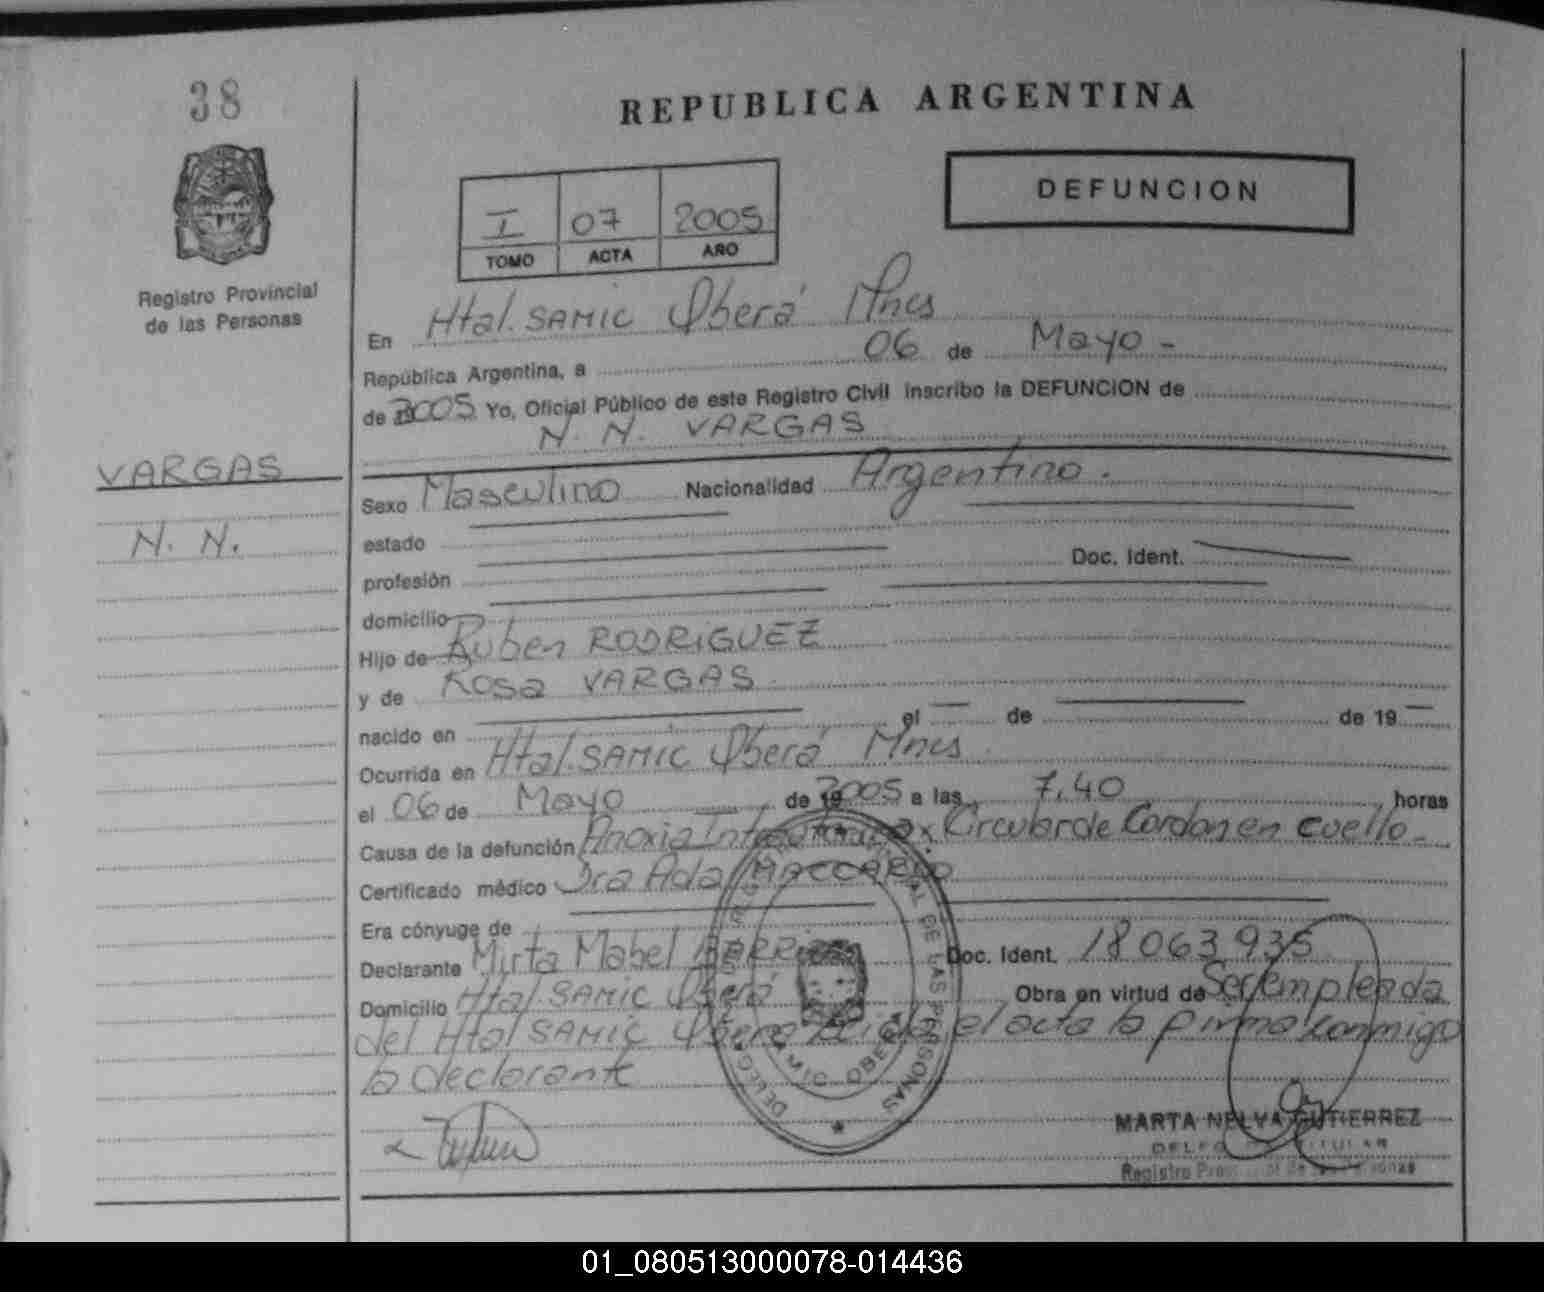 38
REPUBLICA ARGENTINA
DEFUNCION
I 07 2005
TOMO ACTA AÑO
Registro Provincial
de las Personas
En Htal. SAMIC Oberá Mnes
República Argentina, a 06 de Mayo -
de 2005 Yo, Oficial Público de este Registro Civil inscribo la DEFUNCION de
N. N. VARGAS
VARGAS
N. N.
Sexo Masculino Nacionalidad Argentino.
estado
profesión Doc. Ident.
domicilio
Hijo de Ruben RODRIGUEZ
y de Rosa VARGAS
nacido en el de de 19
Ocurrida en Htal. SAMIC Oberá Mnes
el 06 de Mayo de 2005 a las 7,40 horas
Causa de la defunción Anoxia Intrauterina x Circular de Cordon en cuello -
Certificado médico Dra Ada
Era cónyuge de
Declarante Mirta Mabel Doc. Ident. 18 063 935
Domicilio Htal. SAMIC Oberá Obra en virtud de Ser empleada
del Htal SAMIC Oberá Leida el acta la firma conmigo
la declarante
DELEG DE LAS PERSONAS
SAMIC OBERA
MARTA NELVA GUTIERREZ
Registro Prov de las Personas
01_080513000078-014436